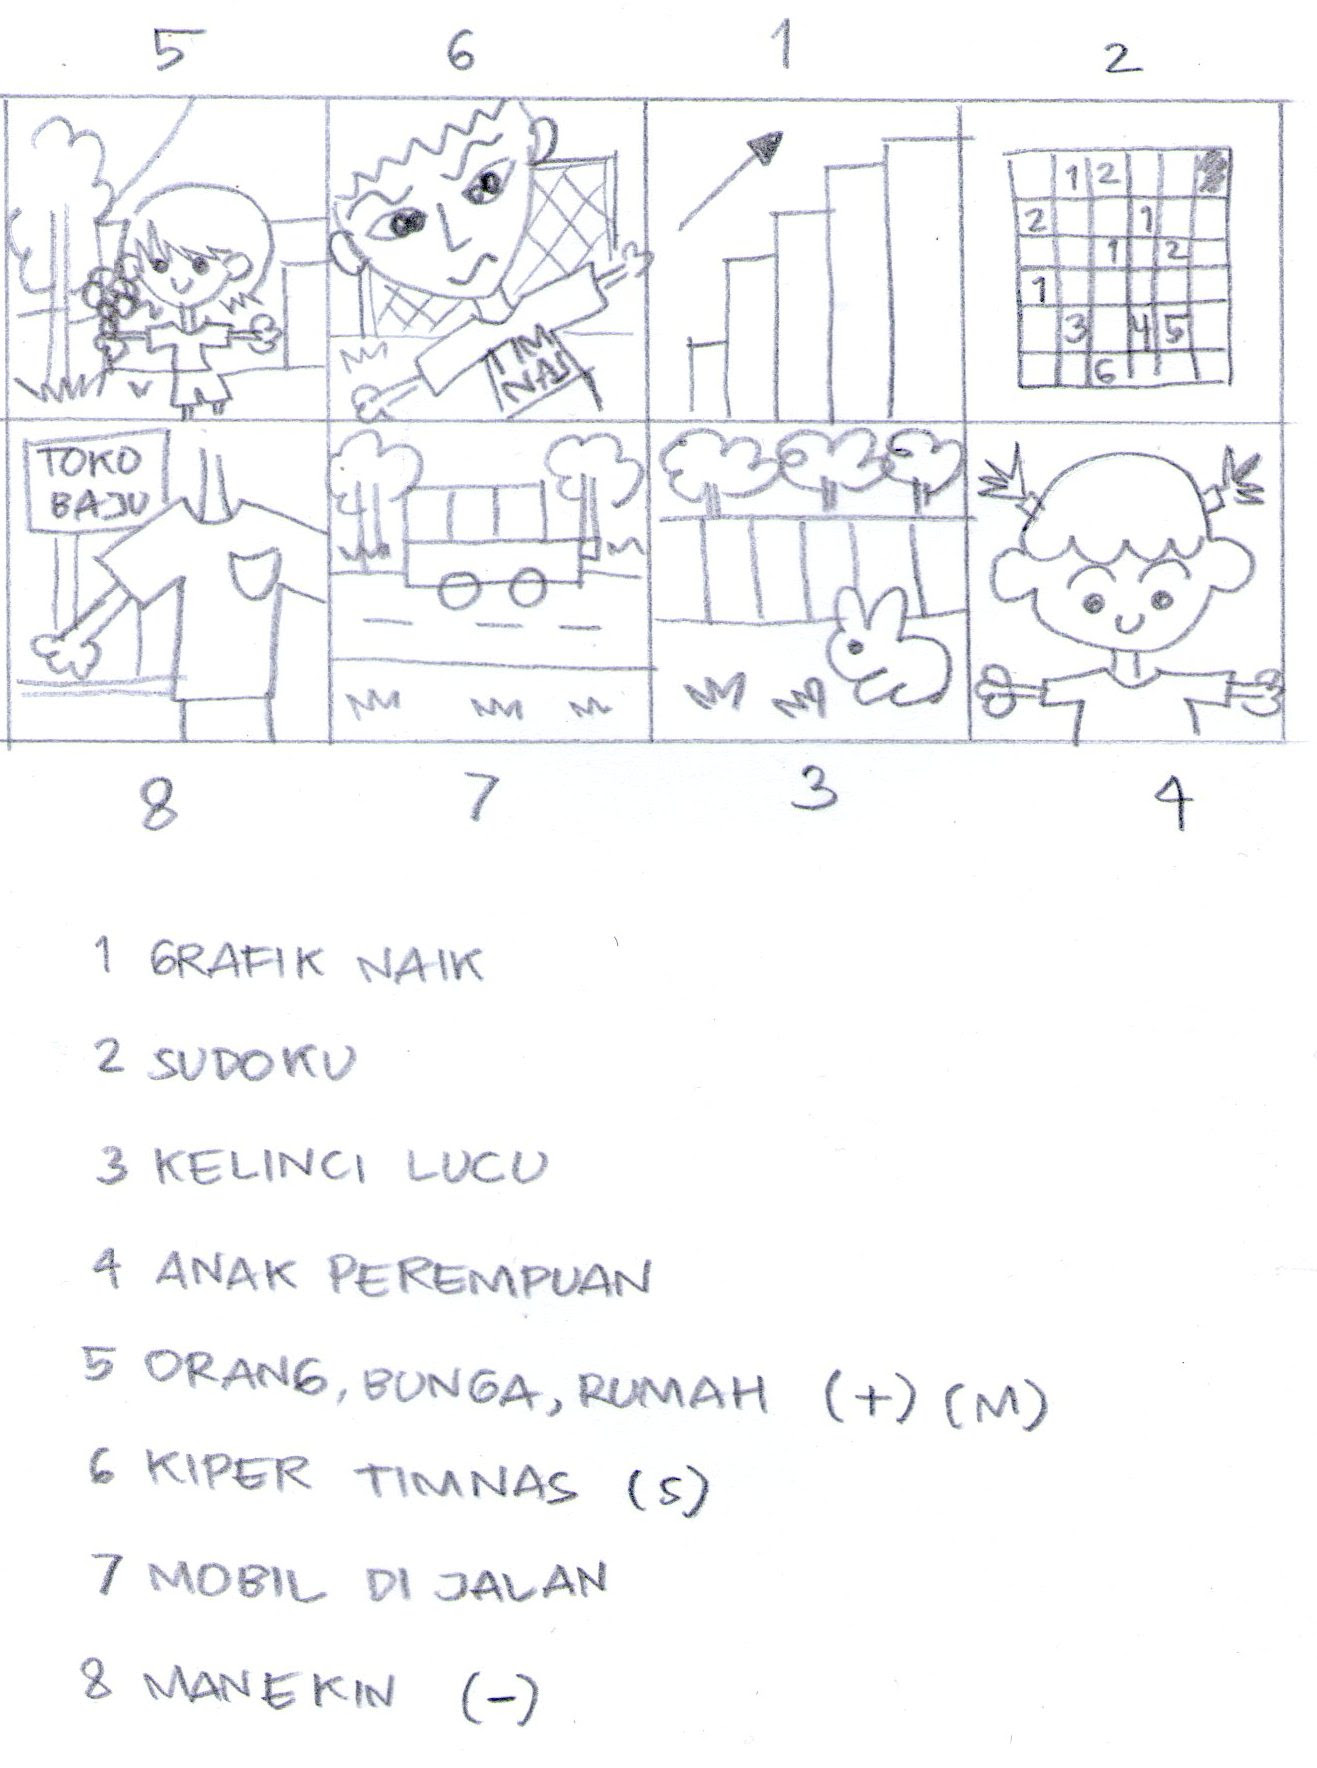 5 6 1 2
1 2
2 1
1 2
1
3 4 5
6
TIM
NAS
TOKO
BAJU
8 7 3 4
1 GRAFIK NAIK
2 SUDOKU
3 KELINCI LUCU
4 ANAK PEREMPUAN
5 ORANG, BUNGA, RUMAH (+) (M)
6 KIPER TIMNAS (S)
7 MOBIL DI JALAN
8 MANEKIN (-)